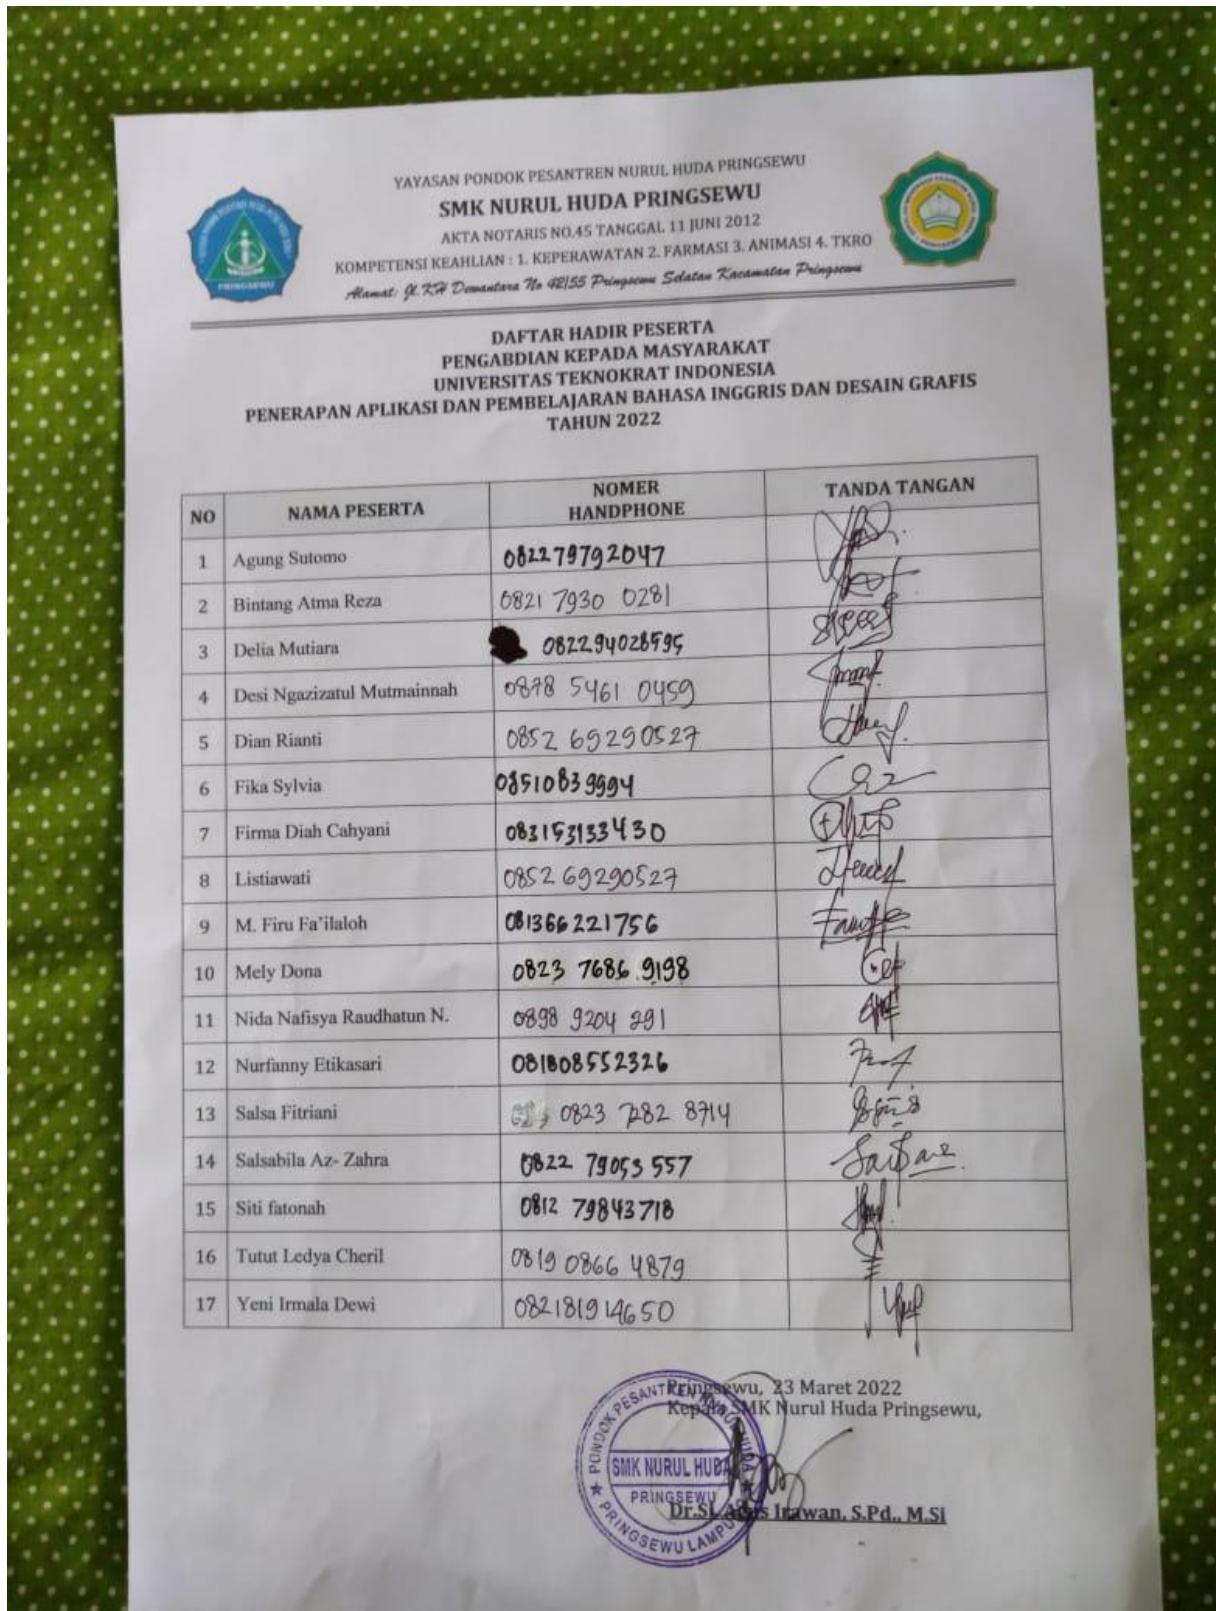 YAYASAN PONDOK PESANTREN NURUL HUDA PRINGSEWU
SMK NURUL HUDA PRINGSEWU
AKTA NOTARIS NO.45 TANGGAL 11 JUNI 2012
KOMPETENSI KEAHLIAN : 1. KEPERAWATAN 2. FARMASI 3. ANIMASI 4. TKRO
Alamat: Jl. KH Dewantara No 42/55 Pringsewu Selatan Kacamatan Pringsewu
PRINGSEWU
DAFTAR HADIR PESERTA
PENGABDIAN KEPADA MASYARAKAT
UNIVERSITAS TEKNOKRAT INDONESIA
PENERAPAN APLIKASI DAN PEMBELAJARAN BAHASA INGGRIS DAN DESAIN GRAFIS
TAHUN 2022
NO NAMA PESERTA NOMER HANDPHONE TANDA TANGAN
1 Agung Sutomo 082279792047
2 Bintang Atma Reza 0821 7930 0281
3 Delia Mutiara 082294028595
4 Desi Ngazizatul Mutmainnah 0878 5461 0459
5 Dian Rianti 0852 69290527
6 Fika Sylvia 08510839994
7 Firma Diah Cahyani 083153133430
8 Listiawati 0852 69290527
9 M. Firu Fa'ilaloh 081366221756
10 Mely Dona 0823 7686 9198
11 Nida Nafisya Raudhatun N. 0898 9204 291
12 Nurfanny Etikasari 081808552326
13 Salsa Fitriani 0823 7282 8714
14 Salsabila Az- Zahra 0822 79053 557
15 Siti fatonah 0812 79843718
16 Tutut Ledya Cheril 0819 0866 4879
17 Yeni Irmala Dewi 082181914650
Pringsewu, 23 Maret 2022
Kepala SMK Nurul Huda Pringsewu,
PONDOK PESANTREN NURUL HUDA
SMK NURUL HUDA
PRINGSEWU
PRINGSEWU LAMPUNG
Irawan, S.Pd., M.Si